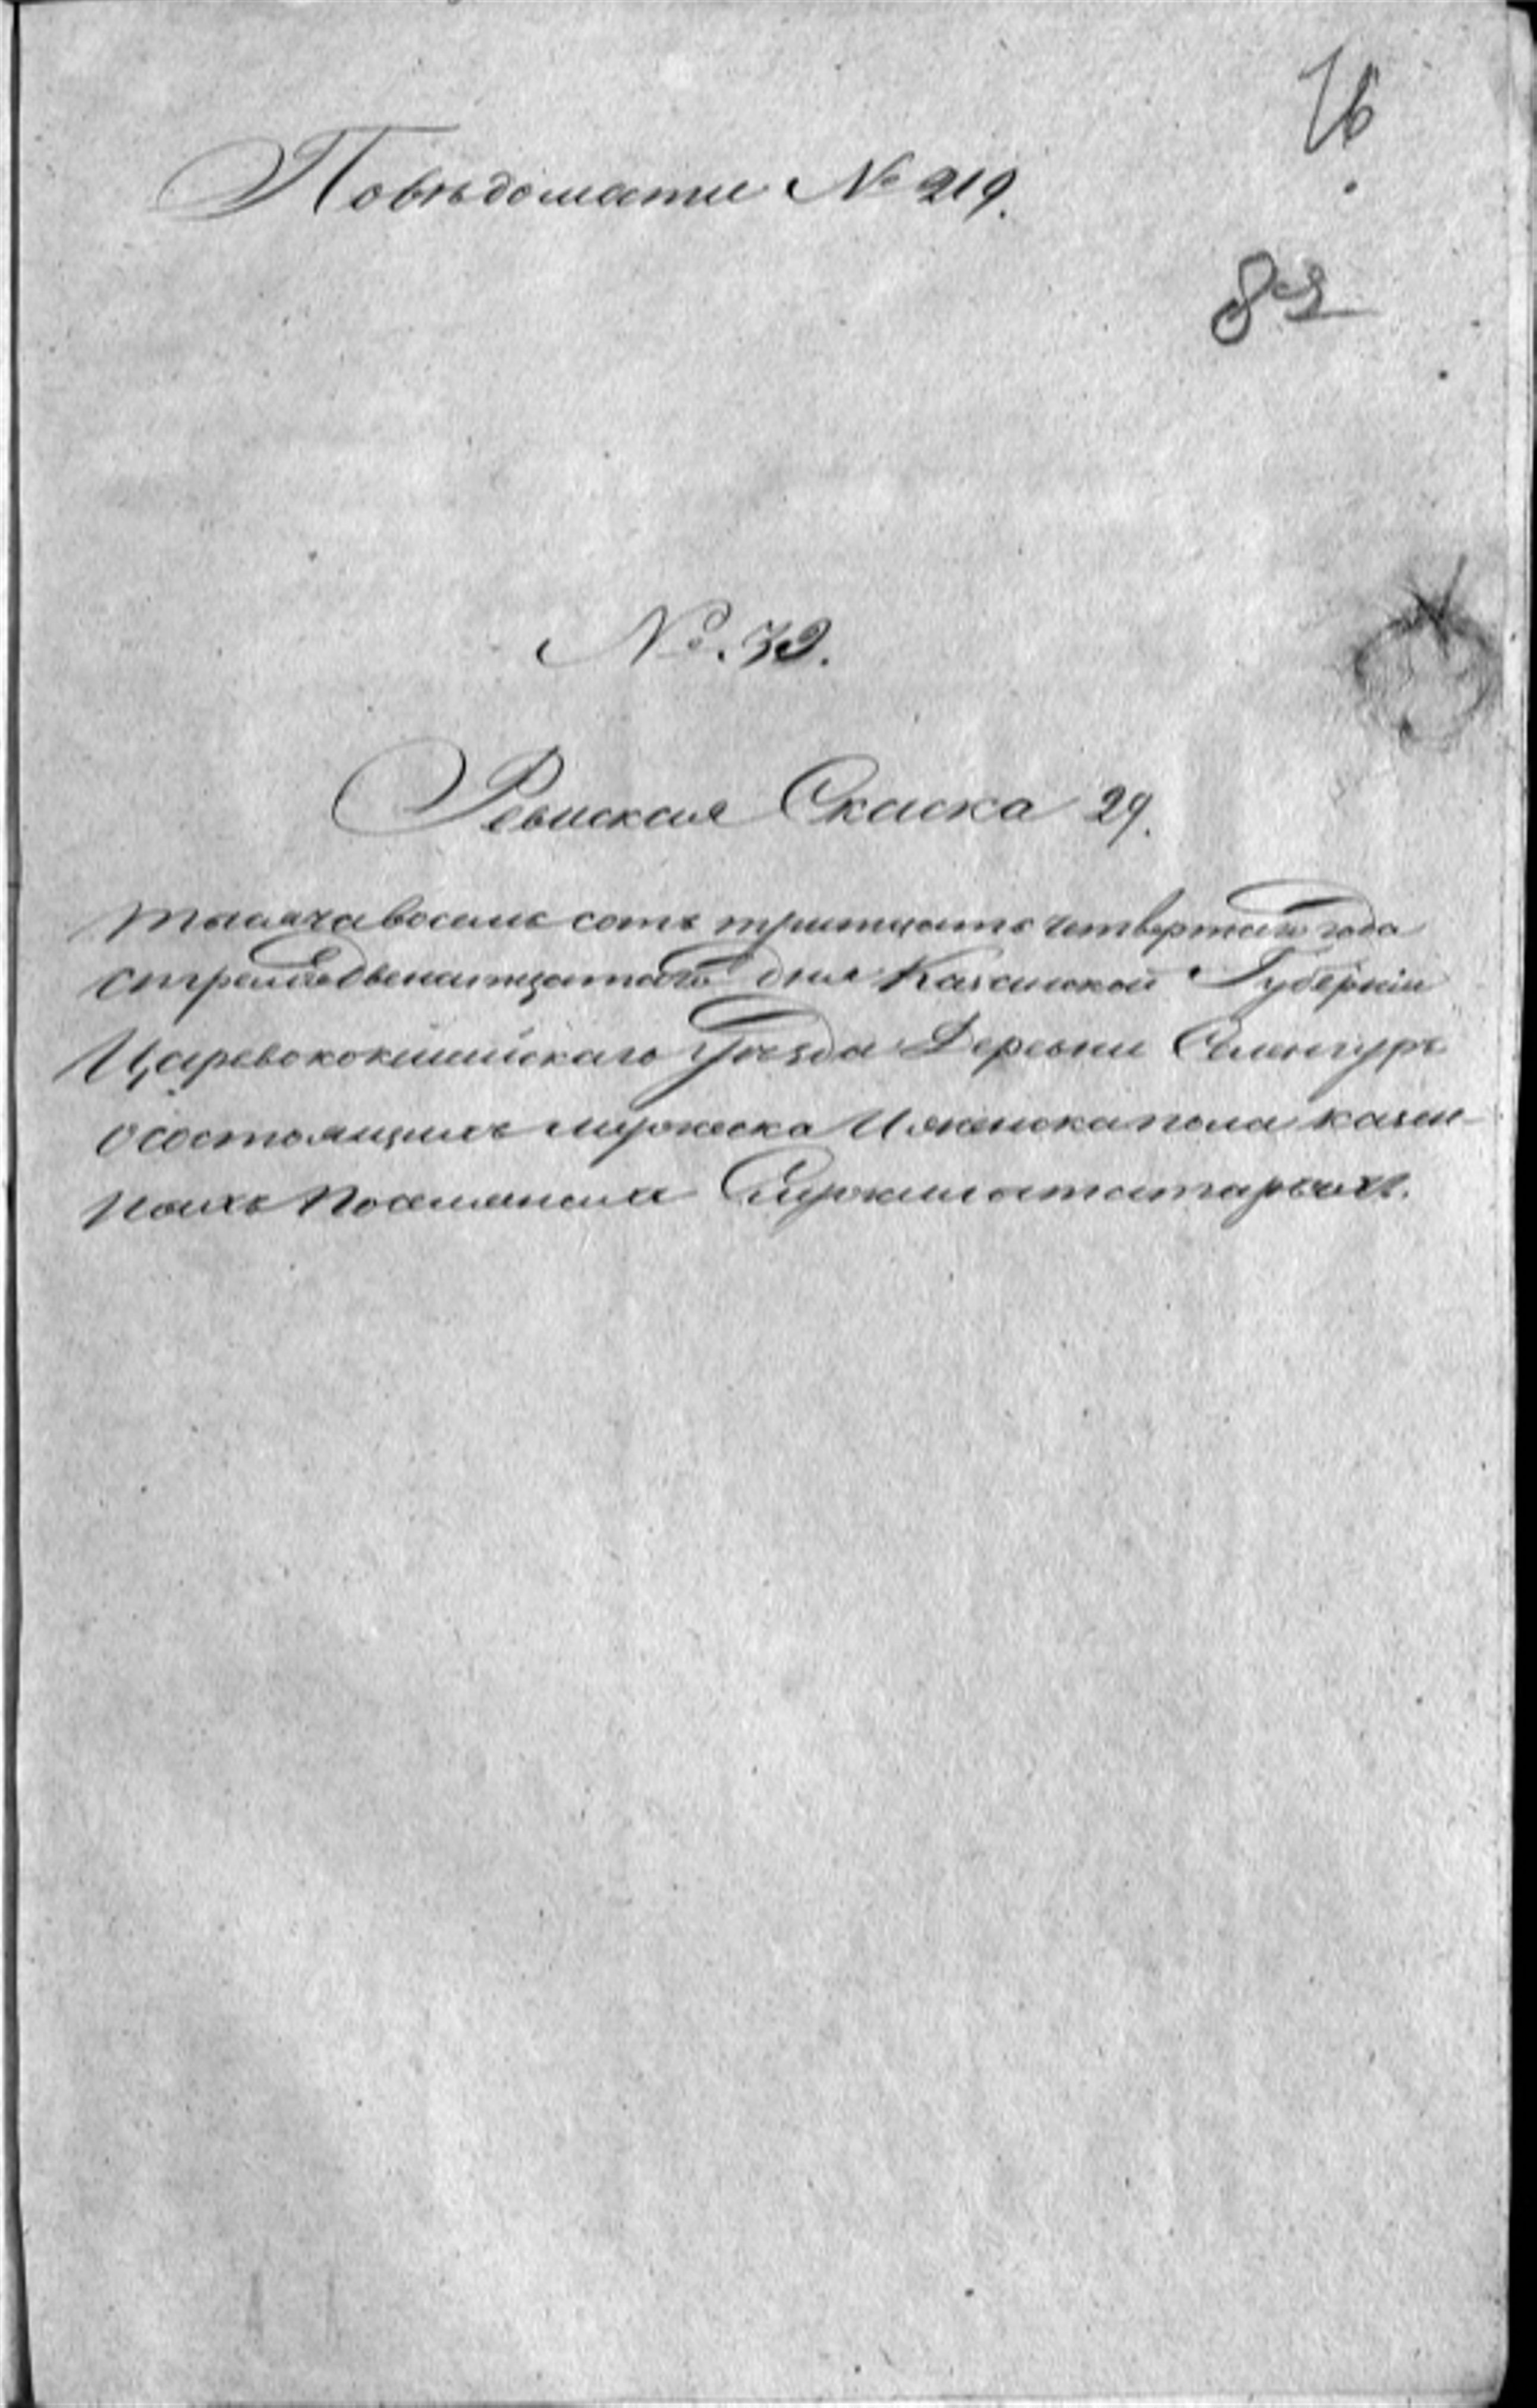 76
Повѣдомати № 219.
82
№. 39.
Ревиская Скаска 29.
тысяча восемь сотъ тритцать четвертаго года
апреля двенатцатаго дня Казанской Губернiи
Царевококшайскаго Уѣзда Деревни
о состоящихъ мужеска И женска пола казен-
ныхъ Поселянъ